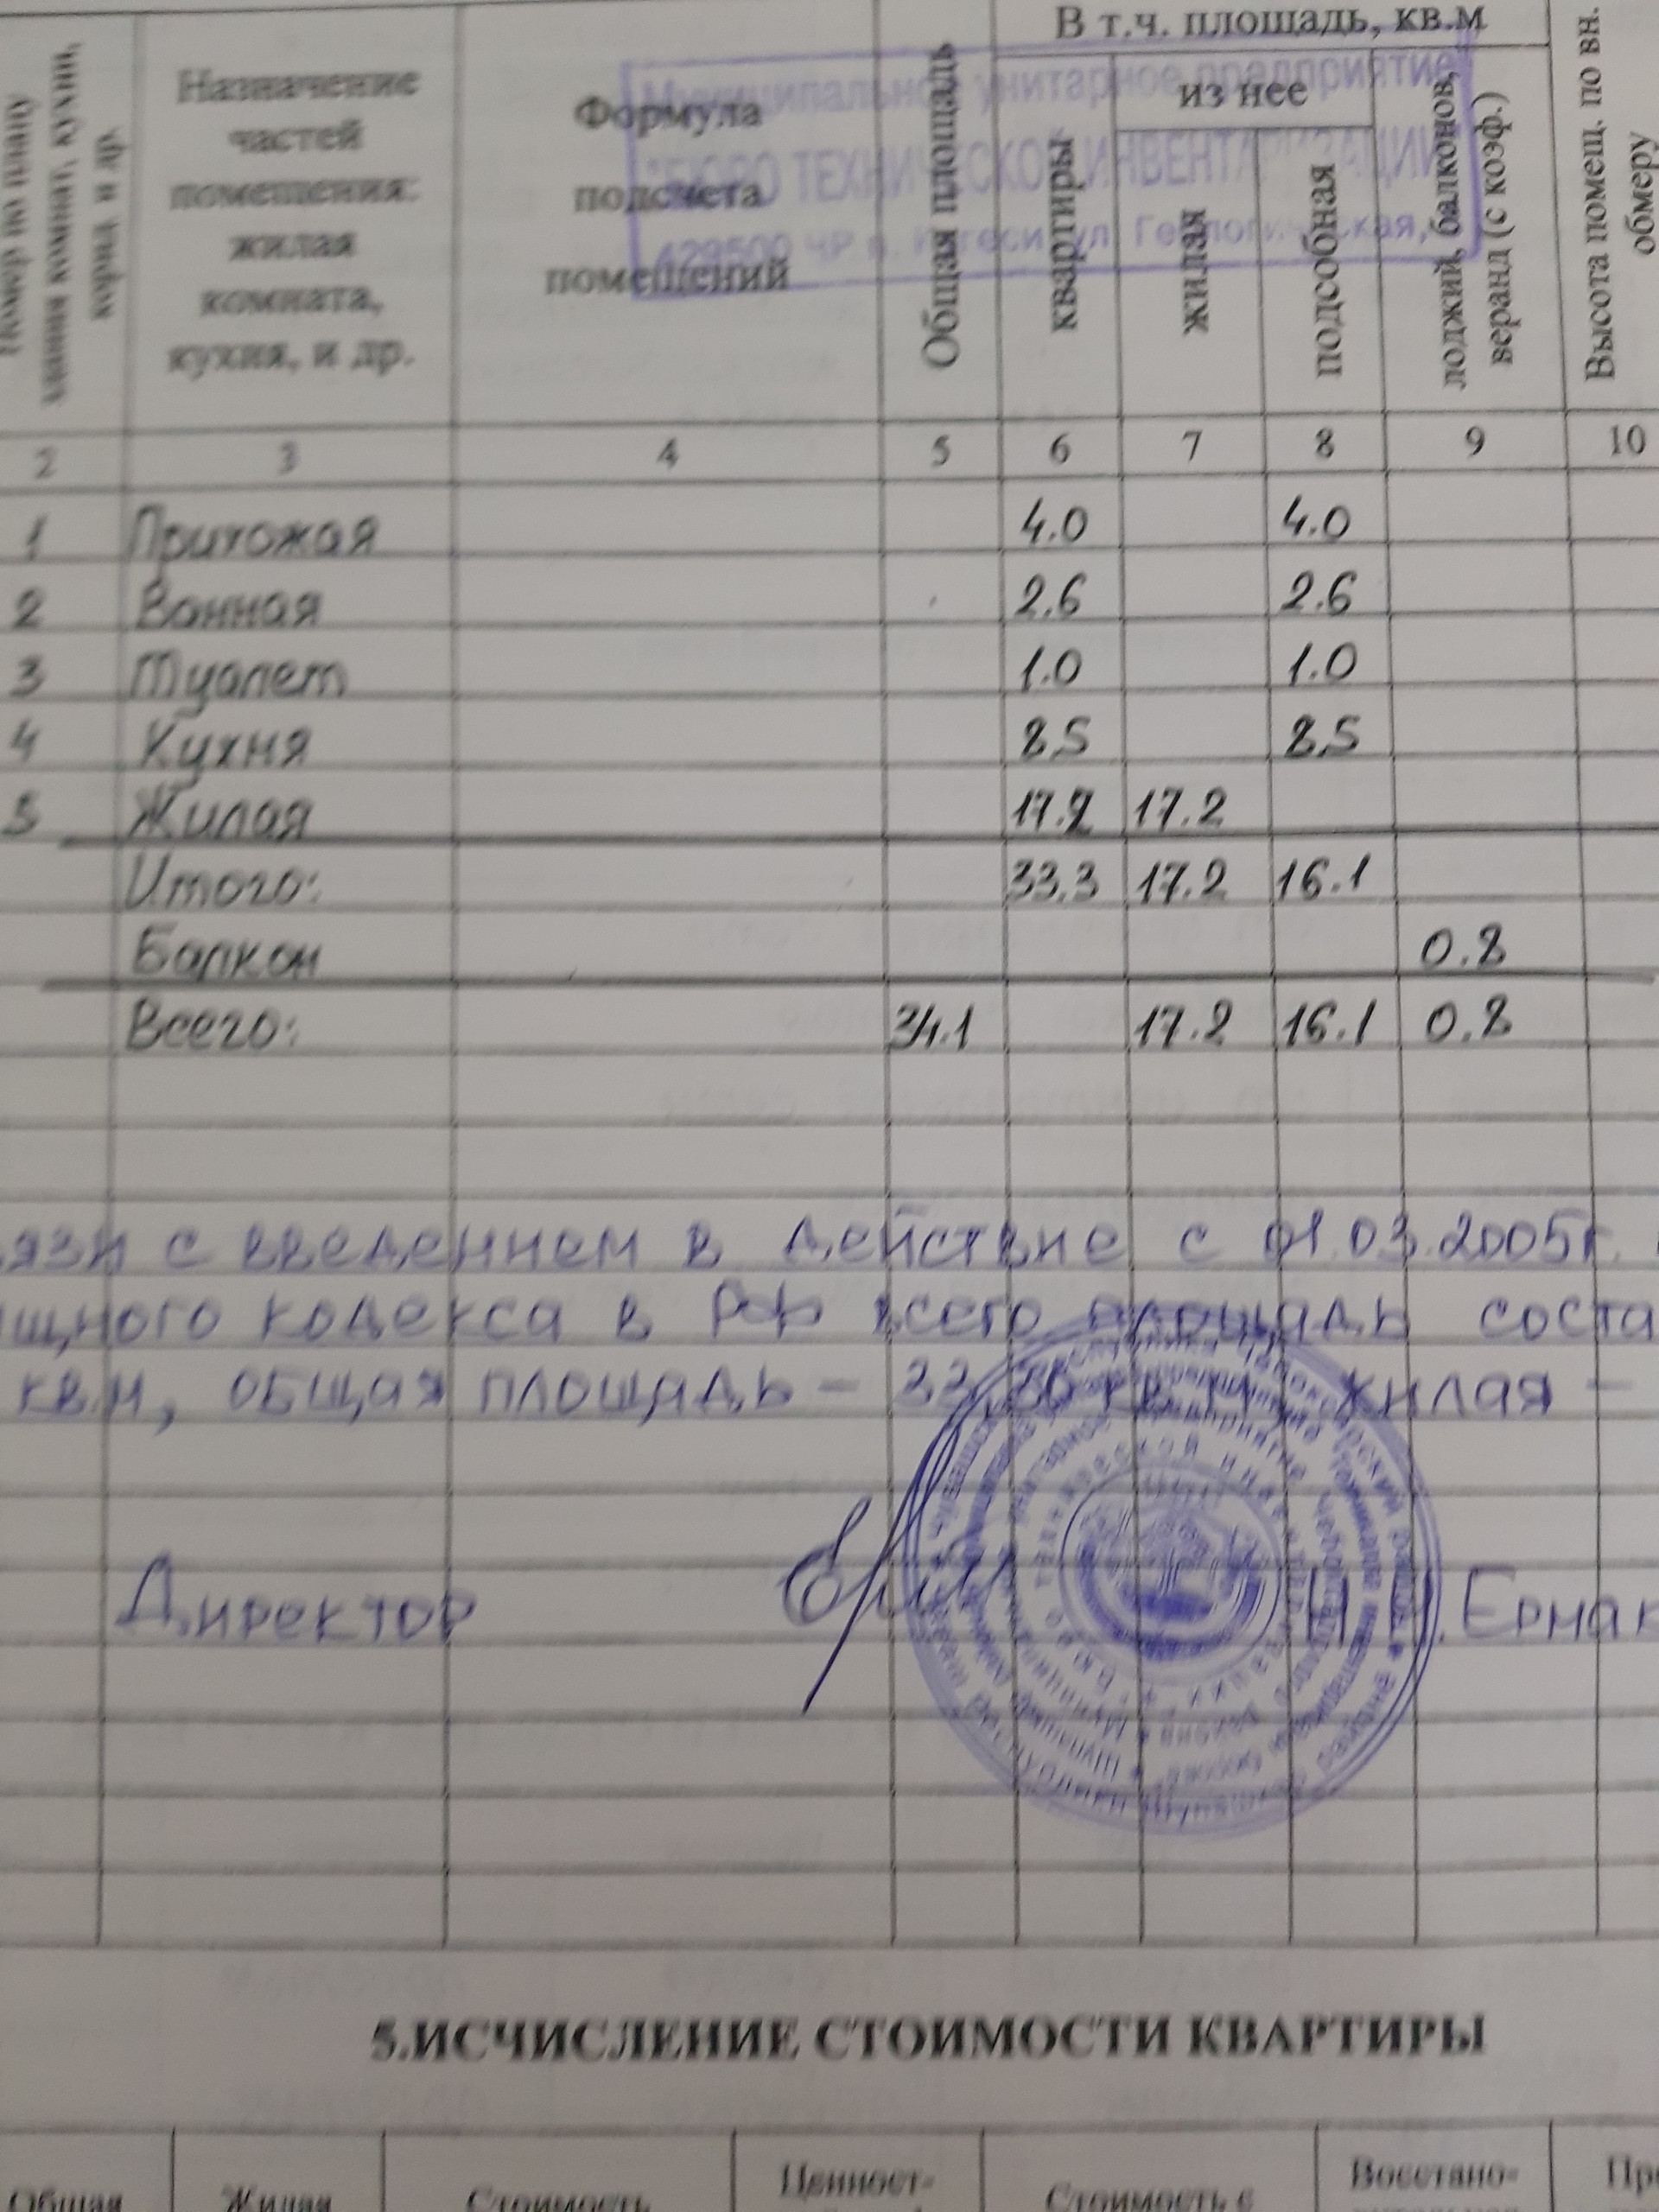 В т.ч. площадь, кв.м
Номер по плану
здания комнат, кухни,
корид и др.
Назначение
частей
помещения:
жилая
комната,
кухня, и др.
Формула
подсчета
помещений
Общая площадь
квартиры
из нее
жилая
подсобная
лоджий, балконов,
веранд (с коэф.)
Высота помещ. по вн.
обмеру
Муниципальное унитарное предприятие
"БЮРО ТЕХНИЧЕСКОЙ ИНВЕНТАРИЗАЦИИ
429500 ЧР п. Кугеси ул. Геологическая,
2 3 4 5 6 7 8 9 10
1 Прихожая 4.0 4.0
2 Ванная 2.6 2.6
3 Туалет 1.0 1.0
4 Кухня 8.5 8.5
5 Жилая 17.2 17.2
Итого: 33.3 17.2 16.1
Балкон 0.8
Всего: 34.1 17.2 16.1 0.8
вязи с введением в действие с 01.03.2005г.
ищного кодекса в РФ всего площадь соста
кв.м, общая площадь - 33,30 кв.м, жилая -
Директор Н.И.Ермак
5.ИСЧИСЛЕНИЕ СТОИМОСТИ КВАРТИРЫ
Общая Жилая Стоимость Ценност- Стоимость с Восстано- Пр